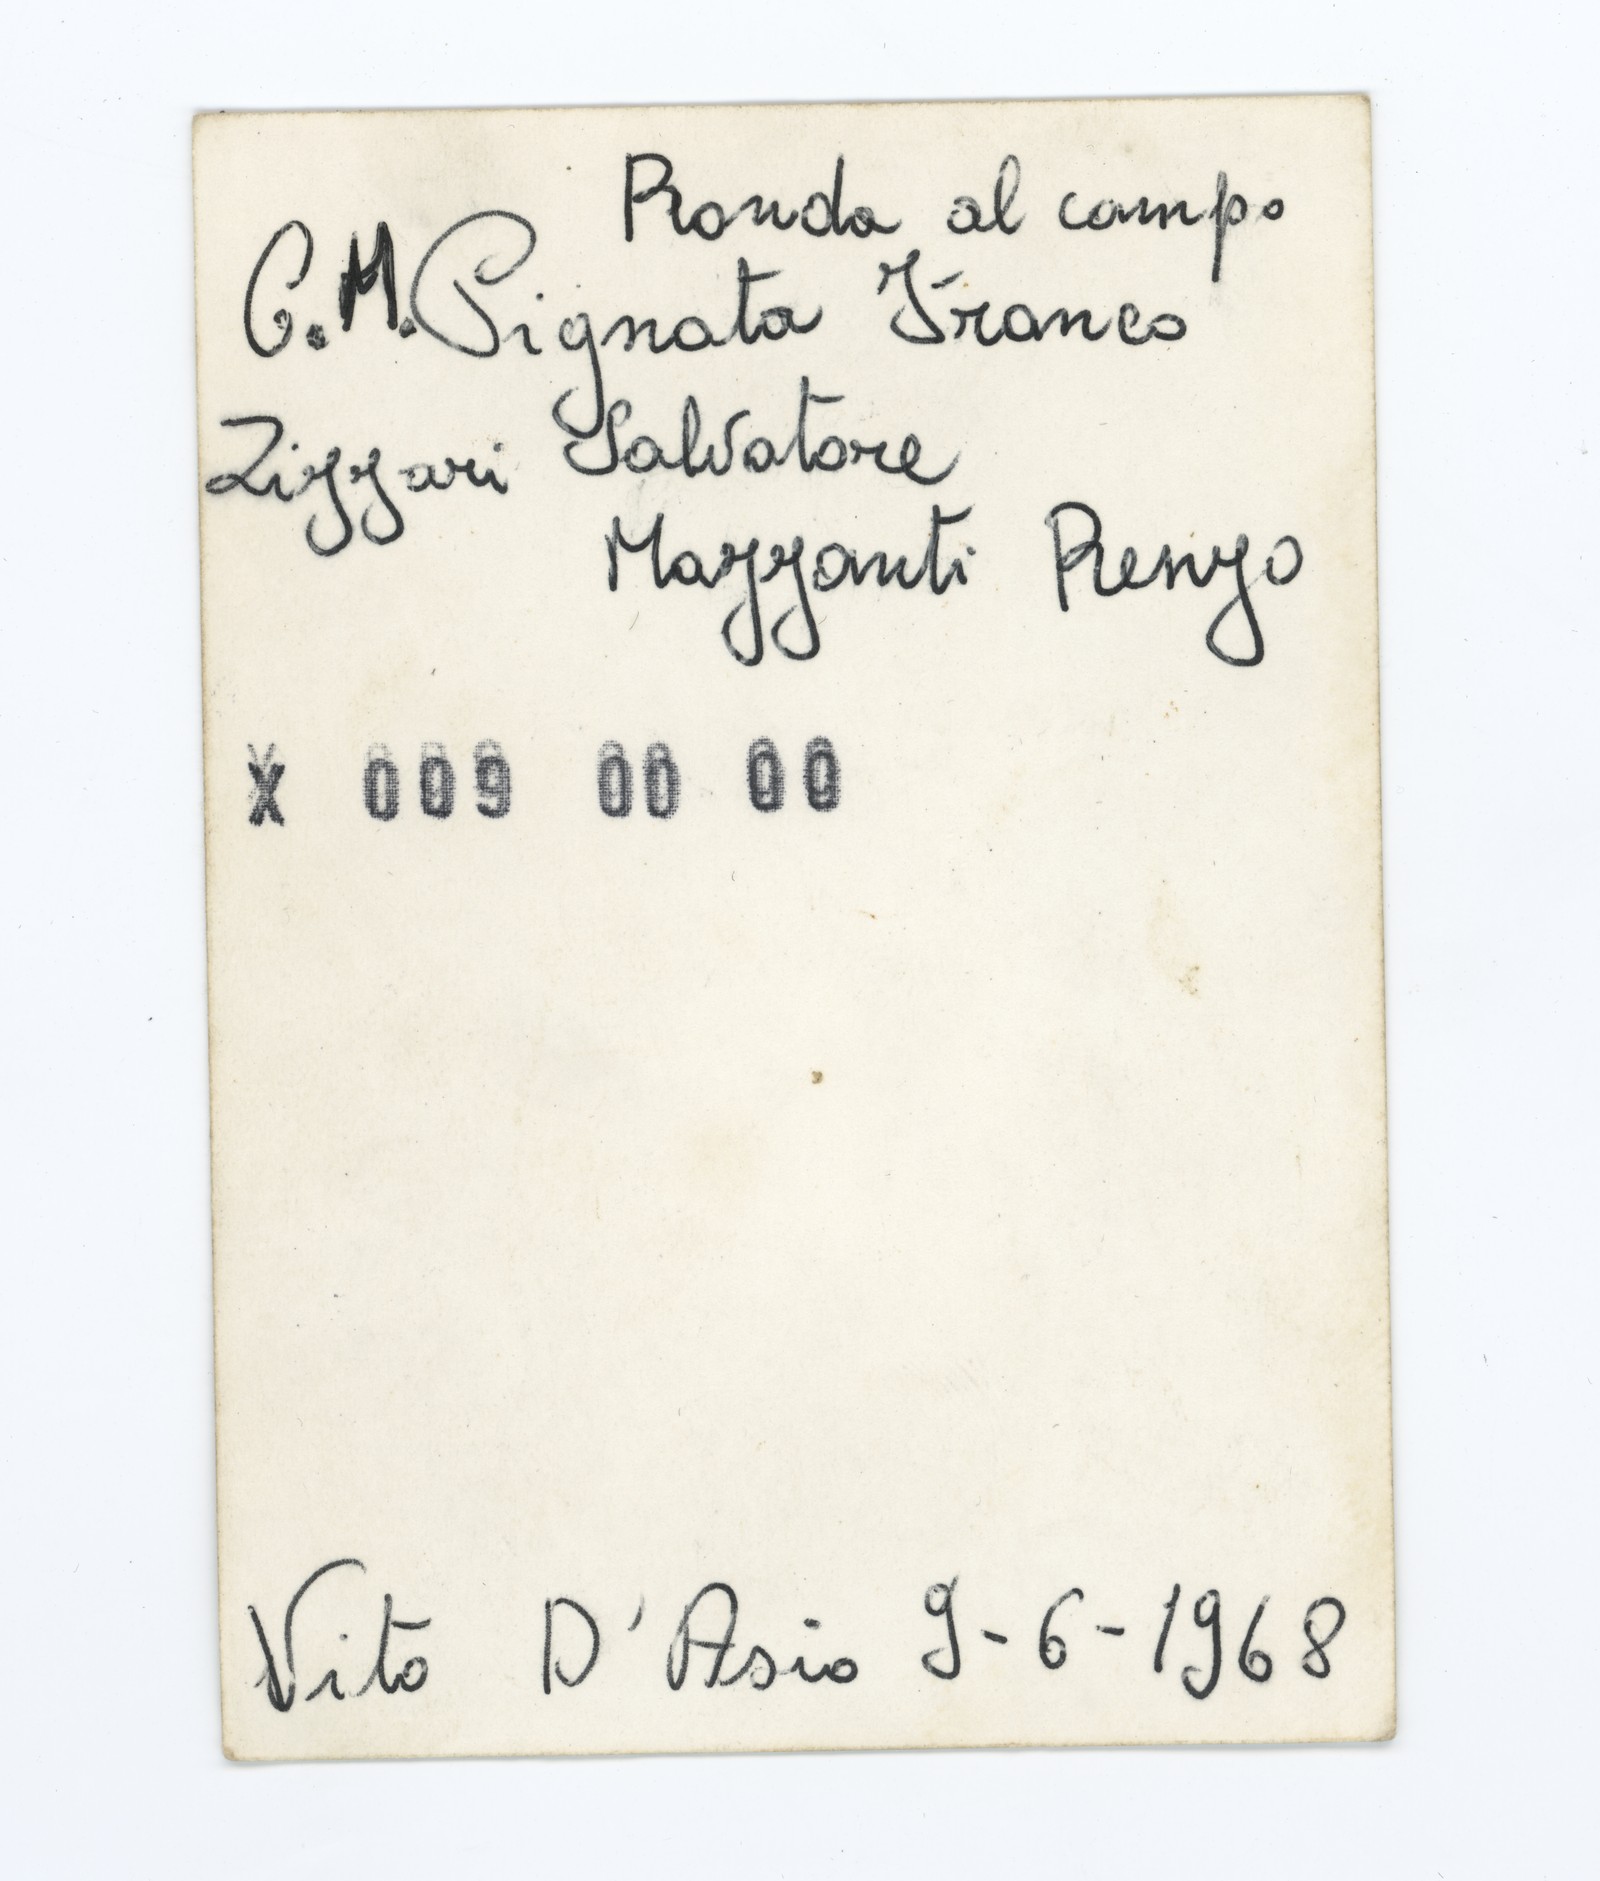 Ronda al campo
C.M. Pignata Franco
Zizzari Salvatore
Mazzanti Renzo
X 009 00 00
Vito D'Asio 9-6-1968